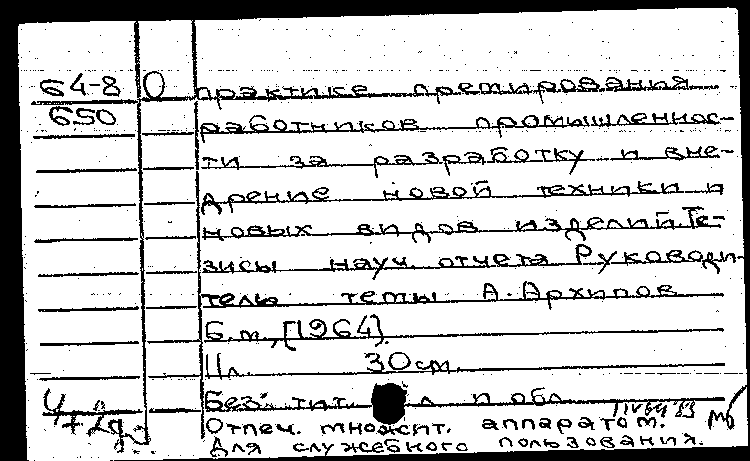 64-8 О практике премирования
650 работников промышленнос-
ти за разработку и вне-
дрение новой техники и
новых видов изделий. Те-
зисы науч. отчета Руководи-
тель темы А. Архипов
Б. м., [1964].
11 л. 30 см.
Без тит. л и обл
Отпеч. множит. аппаратом.
Для служебного пользования.